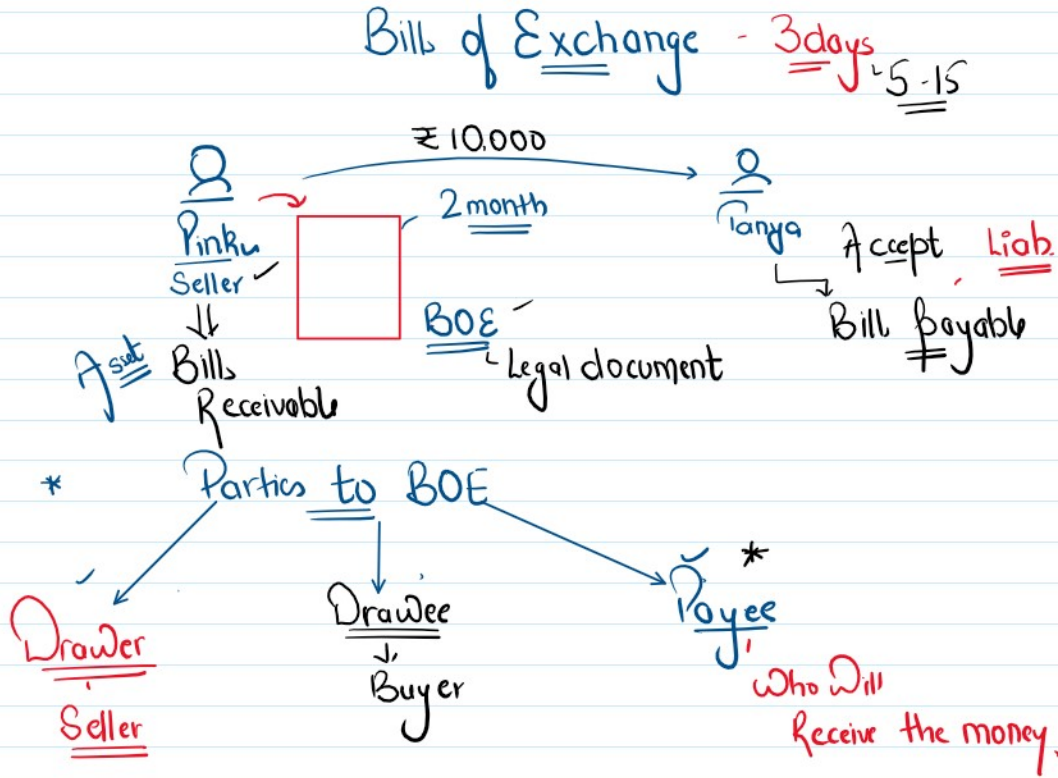 Bills of Exchange - 3days
5-15
₹10,000
2 month
Pinku
Seller
Tanya
Accept Liab.
Bill payable
BOE
Legal document
Asset Bills
Receivable
* Parties to BOE
Drawer
Seller
Drawee
Buyer
*
Payee
Who Will
Receive the money.